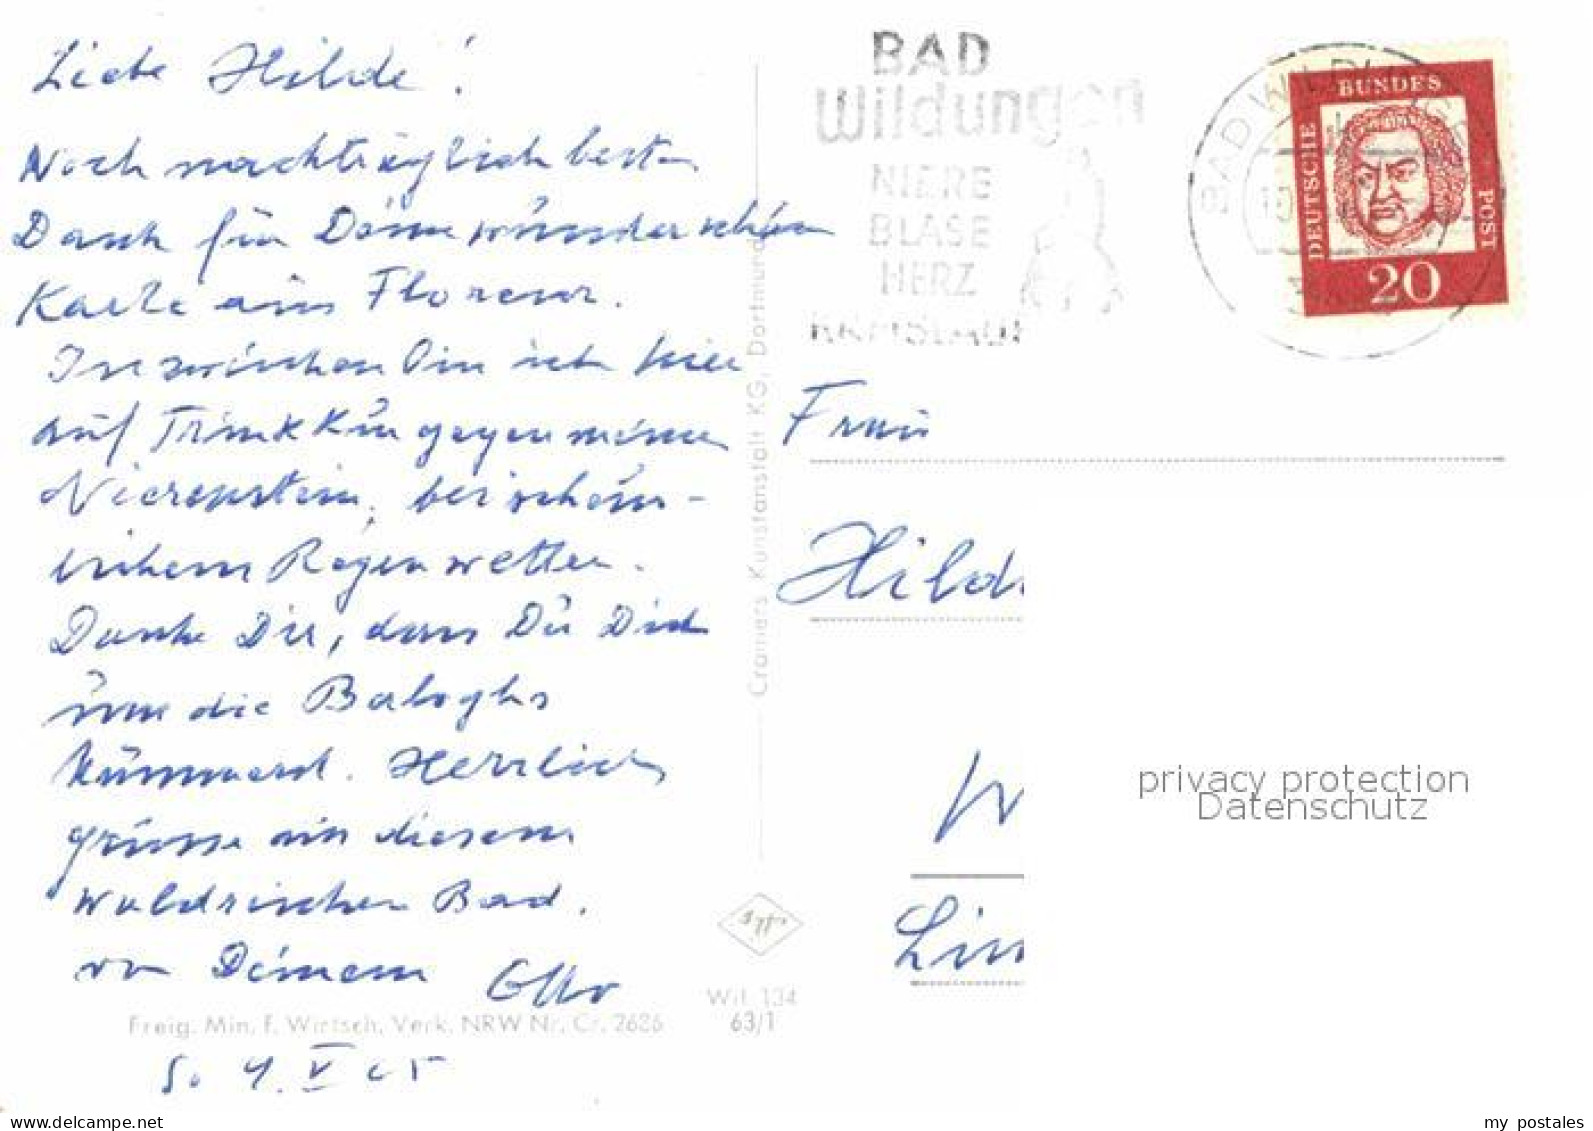 Liebe Hilde!
Noch nachträglich besten
Dank für Deine wunderschöne
Karte aus Florenz.
Inzwischen bin ich hier
auf Trinkkur gegen meinen
Nierenstein, bei scheuss-
lichem Regenwetter.
Danke Dir, dass Du Dich
um die Baloghs
kümmerst. Herzlich
Grüsse aus diesem
Waldrischen Bad.
von Deinem Otto
Freig. Min. F. Wirtsch. Verk. NRW Nr. Cr. 2626
Wil. 134
63/1
Cramers Kunstanstalt KG, Dortmund
BAD
Wildungen
NIERE
BLASE
HERZ
KREISLAUF
BAD WILDUNGEN
DEUTSCHE
BUNDES
POST
20
Frau
Hilde
W
Lin
privacy protection
Datenschutz
my postales